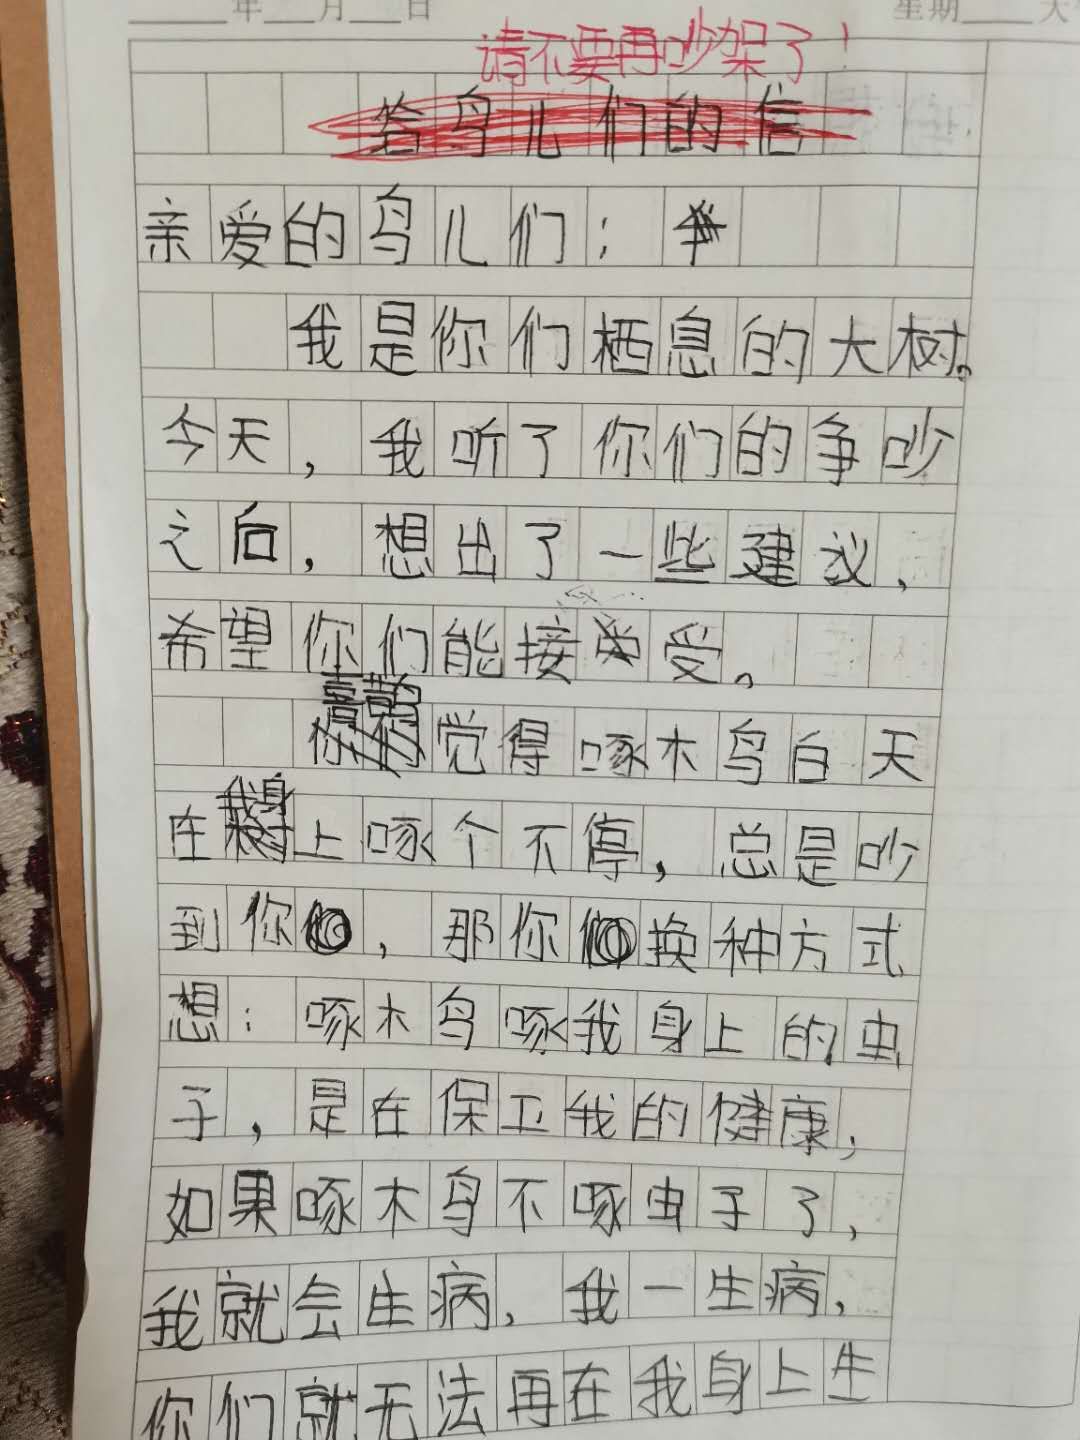 年 月 日 星期 天
请不要再吵架了！
给鸟儿们的信
亲爱的鸟儿们：
我是你们栖息的大树。
今天，我听了你们的争吵
之后，想出了一些建议，
希望你们能接受。
喜鹊觉得啄木鸟白天
在我身上啄个不停，总是吵
到你，那你换种方式
想：啄木鸟啄我身上的虫
子，是在保卫我的健康，
如果啄木鸟不啄虫子了，
我就会生病，我一生病，
你们就无法再在我身上生